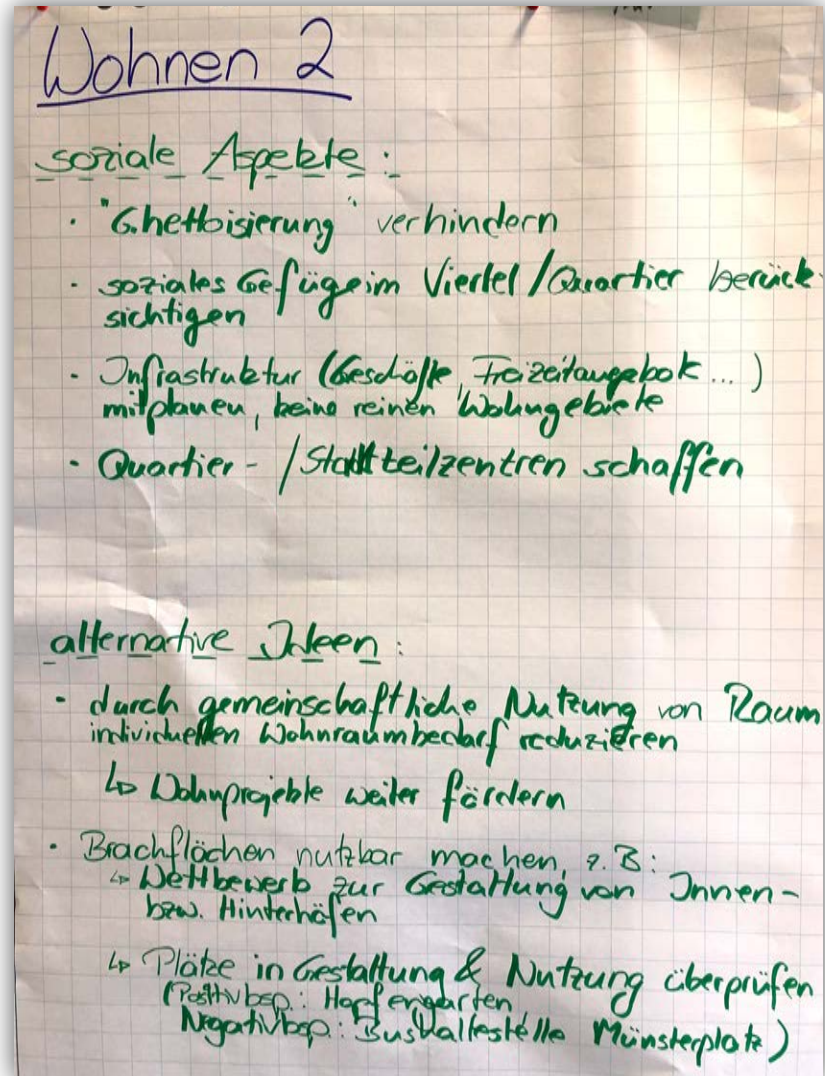 Wohnen 2
soziale Aspekte:
· "Ghettoisierung" verhindern
· soziales Gefüge im Viertel / Quartier berück-
sichtigen
· Infrastruktur (Geschäfte, Freizeitangebote ...)
mitplanen, keine reinen Wohngebiete
· Quartier- / Stadtteilzentren schaffen
alternative Ideen:
· durch gemeinschaftliche Nutzung von Raum
individuellen Wohnraumbedarf reduzieren
↳ Wohnprojekte weiter fördern
· Brachflächen nutzbar machen, z.B:
↳ Wettbewerb zur Gestaltung von Innen-
bzw. Hinterhöfen
↳ Plätze in Gestaltung & Nutzung überprüfen
(Positivbsp.: Hopfengarten,
Negativbsp.: Bushaltestelle Münsterplatz)